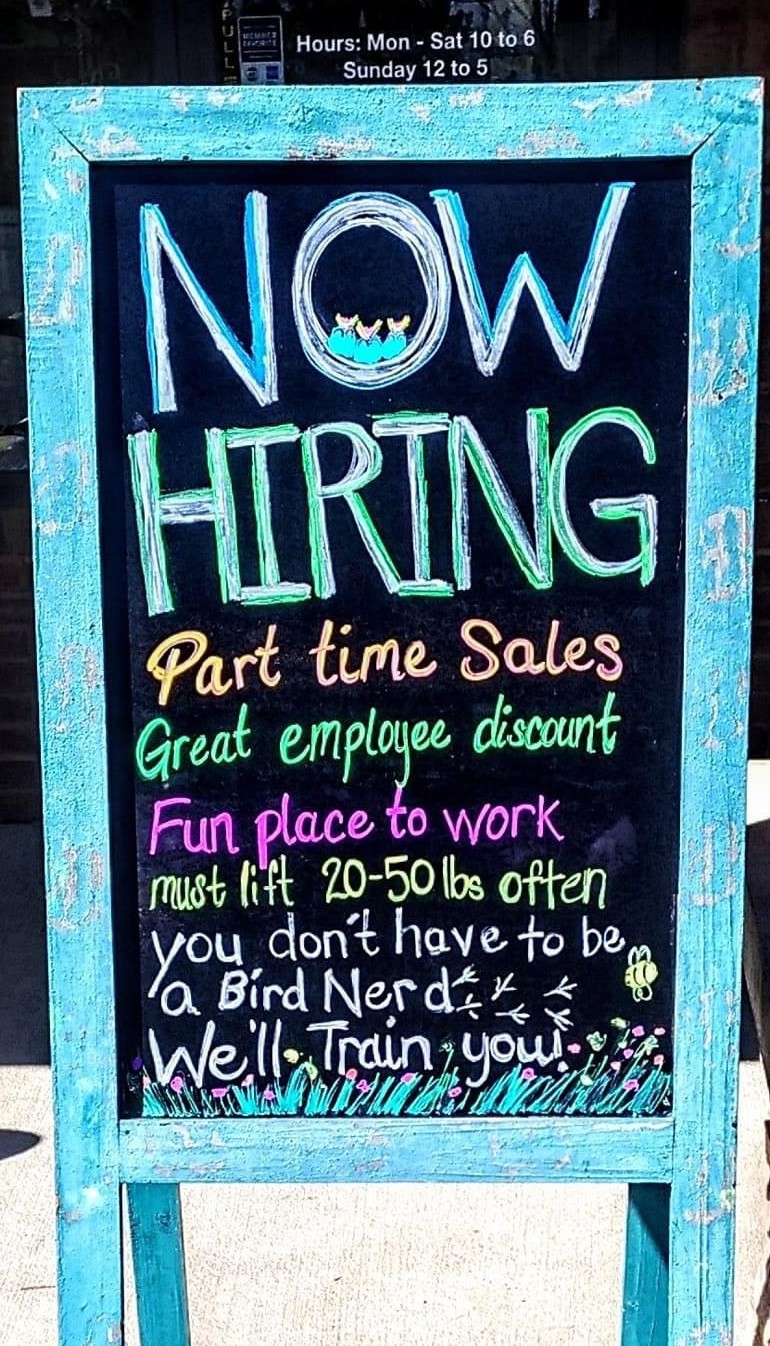 PULL
MEMBER
FAVORITE
Hours: Mon - Sat 10 to 6
Sunday 12 to 5
NOW
HIRING
Part time Sales
Great employee discount
Fun place to work
must lift 20-50 lbs often
you don't have to be
a Bird Nerd
We'll Train you!